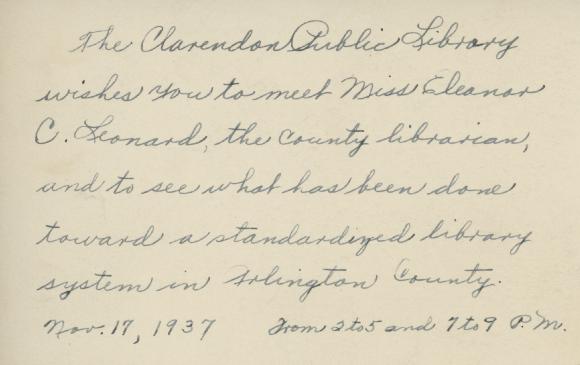 The Clarendon Public Library
wishes you to meet Miss Eleanor
C. Leonard, the county librarian,
and to see what has been done
toward a standardized library
system in Arlington County.
Nov. 17, 1937 From 2 to 5 and 7 to 9 P.M.